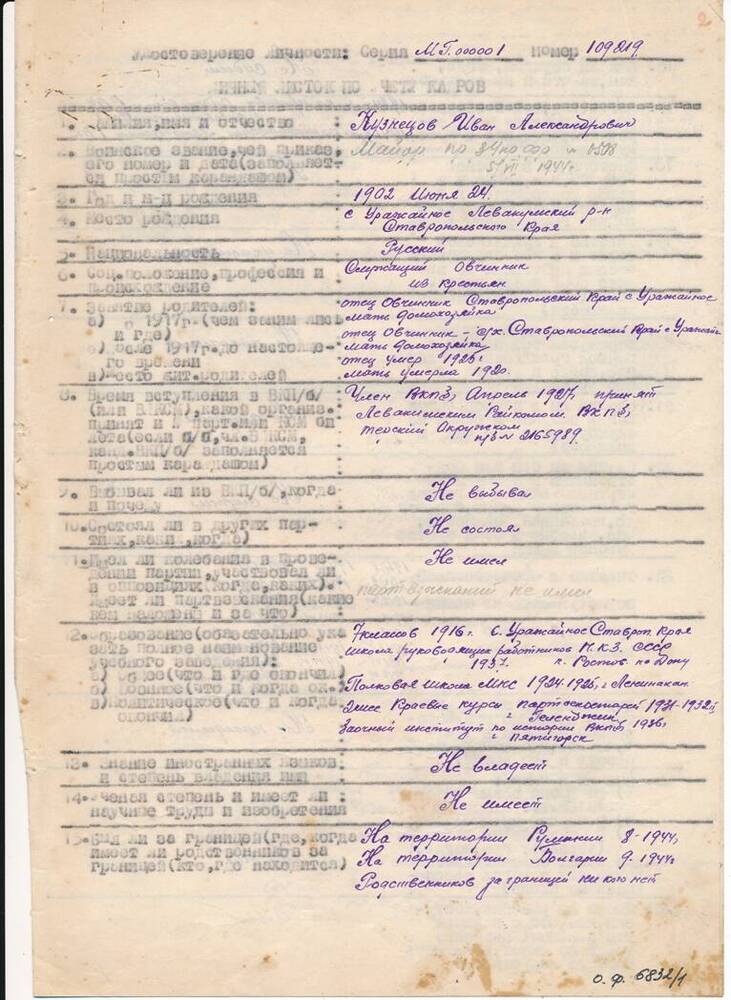 2
Удостоверение личности: Серия МГ.000001 Номер 109219.
ЛИЧНЫЙ ЛИСТОК ПО УЧЕТУ КАДРОВ
1. Фамилия, имя и отчество : Кузнецов Иван Александрович
2. Воинское звание, чей приказ, его номер и дата (заполняется простым карандашом) : Майор по 3 № 0508
5/VII 1944г.
3. Год и м-ц рождения : 1902 Июня 24.
4. Место рождения : с Уражайное Левакумский р-н
Ставропольского Края
5. Национальность : Русский
6. Соц. положение, профессия и : Служащий Овчинник
происхождение : из крестьян
7. Занятие родителей: : отец Овчинник Ставропольский Край с Уражайное
а) до 1917г. (чем занимались : мать домохозяйка
и где) : отец Овчинник – с/х. Ставропольский Край с Уражай
б) после 1917г. до настояще- : мать домохозяйка
го времени : отец умер 1925г
в) место жит. родителей : мать умерла 1920.
8. Время вступления в ВКП/б/ : Член ВКПб, Апрель 1927, принят
(или ВЛКСМ), какой организ. : Левакумским Райкомом ВКПб,
принят и № парт. или КСМ би- : терский Окружком
лета (если п/б, чл. ВЛКСМ, : п/б № 2165989.
канд. ВКП/б/ заполняется
простым карандашом) :
9. Выбывал ли из ВКП/б/, когда : Не выбывал
и почему
10. Состоял ли в других пар- : Не состоял
тиях, каких, когда)
11. Имел ли колебания в прове- : Не имел
дении партии, участвовал ли
в оппозициях (когда, каких).
Имеет ли партвзыскания (какие : партвзысканий не имел
кем наложены и за что) :
12. Образование (обязательно ука- : 7 классов 1916 г. с. Уражайное Ставроп Края
зать полное наименование : школа руководящих работников Н.К.З. СССР
учебного заведения): : 1937. г. Ростов на Дону
а) Общее (что и где окончил)
б) Военное (что и когда ок.) : Полковая школа МКС 1924-1925, г Ленинакан.
в) Политическое (что и когда : Краевые курсы 1931-1932г,
окончил) : г Геленджик
Заочный институт по истории ВКПб, 1936,
г Пятигорск
13. Знание иностранных языков : Не владеет
и степень владения ими
14. Ученая степень и имеет ли : Не имеет
научные труды и изобретения
15. Был ли за границей (где, когда : На территории Румынии 8-1944г
имеет ли родственников за : На территории Болгарии 9-1944г
границей (кто, где находится) : Родственников за границей ни кого нет
О.Ф. 6832/1